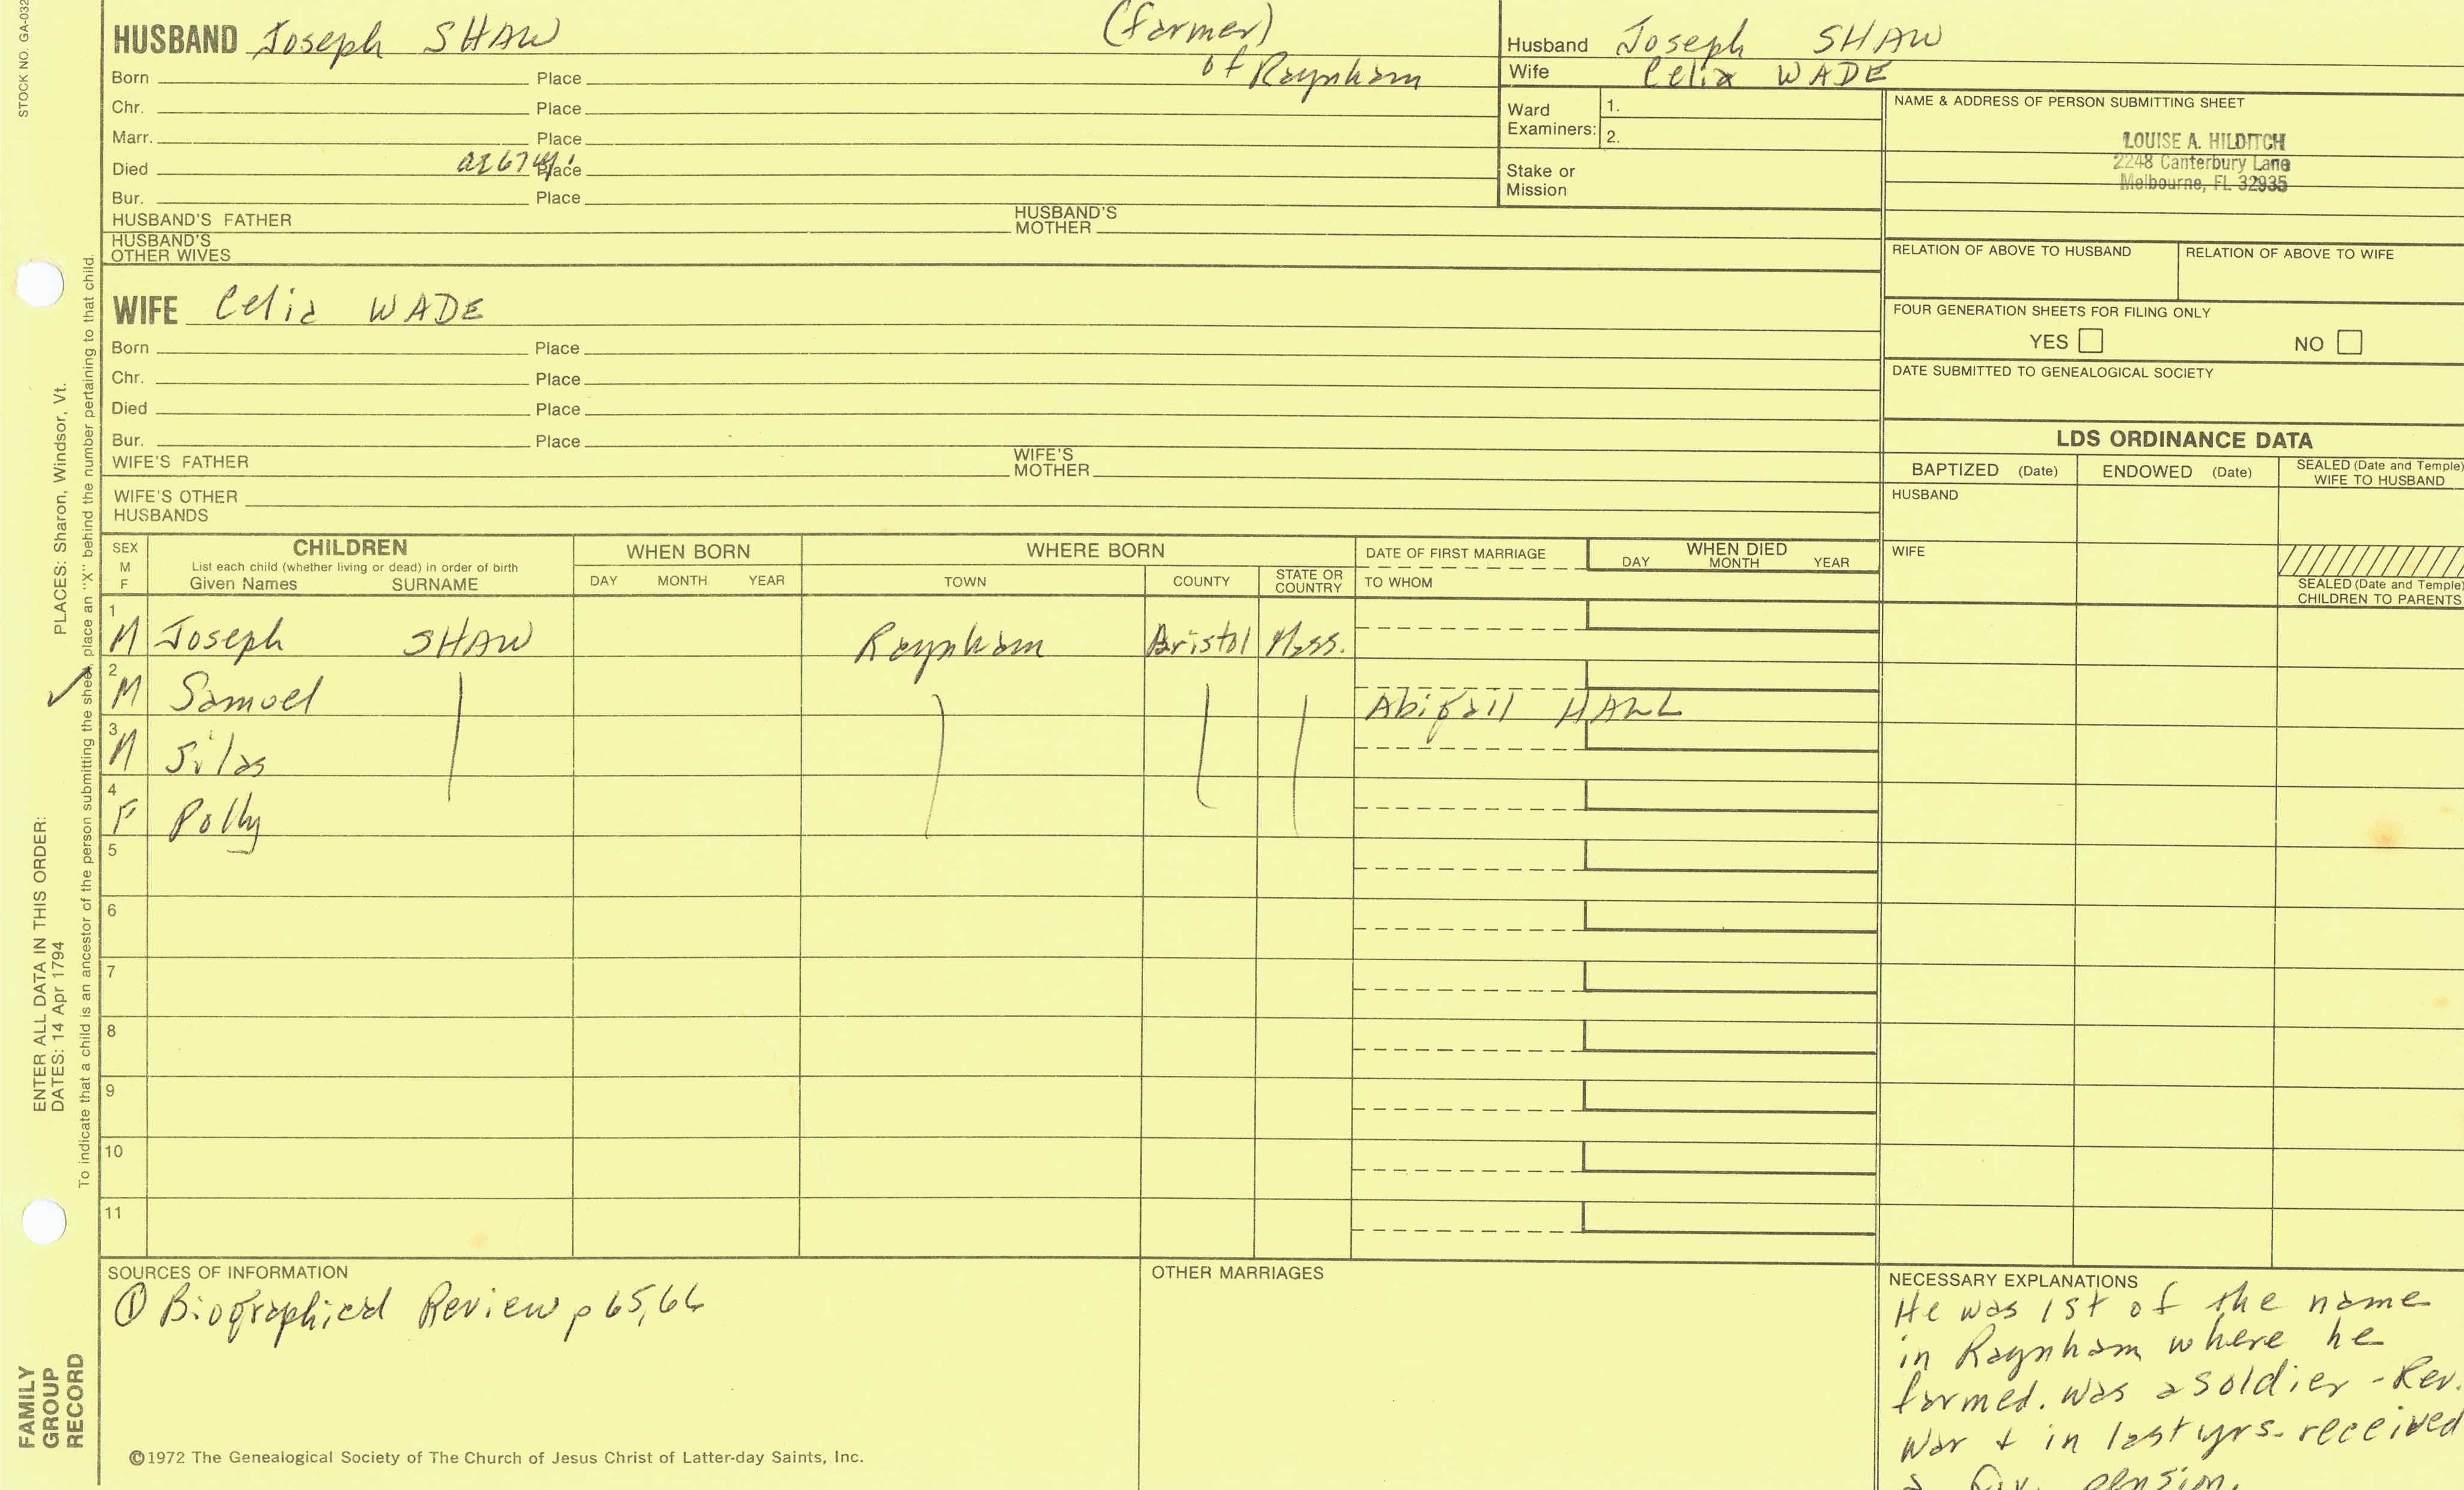 STOCK NO. GA-032
HUSBAND Joseph SHAW (farmer)
of Raynham
Born Place
Chr. Place
Marr. Place
Died Place
Bur. Place
HUSBAND'S FATHER HUSBAND'S MOTHER
HUSBAND'S OTHER WIVES
Husband Joseph SHAW
Wife Celia WADE
Ward Examiners: 1.
2.
Stake or Mission
NAME & ADDRESS OF PERSON SUBMITTING SHEET
LOUISE A. HILDITCH
2248 Canterbury Lane
Melbourne, FL 32935
RELATION OF ABOVE TO HUSBAND RELATION OF ABOVE TO WIFE
FOUR GENERATION SHEETS FOR FILING ONLY
YES NO
DATE SUBMITTED TO GENEALOGICAL SOCIETY
WIFE Celia WADE
Born Place
Chr. Place
Died Place
Bur. Place
WIFE'S FATHER WIFE'S MOTHER
WIFE'S OTHER HUSBANDS
LDS ORDINANCE DATA
BAPTIZED (Date) ENDOWED (Date) SEALED (Date and Temple) WIFE TO HUSBAND
HUSBAND
WIFE
SEALED (Date and Temple) CHILDREN TO PARENTS
SEX M F CHILDREN WHEN BORN WHERE BORN DATE OF FIRST MARRIAGE WHEN DIED
List each child (whether living or dead) in order of birth
Given Names SURNAME DAY MONTH YEAR TOWN COUNTY STATE OR COUNTRY TO WHOM DAY MONTH YEAR
1 M Joseph SHAW Raynham Bristol Mass.
2 M Samuel Abigail HALL
3 M Silas
4 F Polly
5
6
7
8
9
10
11
SOURCES OF INFORMATION
① Biographical Review p 65,66
OTHER MARRIAGES
NECESSARY EXPLANATIONS
He was 1st of the name
in Raynham where he
farmed. Was a soldier - Rev.
War + in last yrs. received
a Gov. pension.
©1972 The Genealogical Society of The Church of Jesus Christ of Latter-day Saints, Inc.
FAMILY GROUP RECORD
ENTER ALL DATA IN THIS ORDER:
DATES: 14 Apr 1794 PLACES: Sharon, Windsor, Vt.
To indicate that a child is an ancestor of the person submitting the sheet, place an "X" behind the number pertaining to that child.